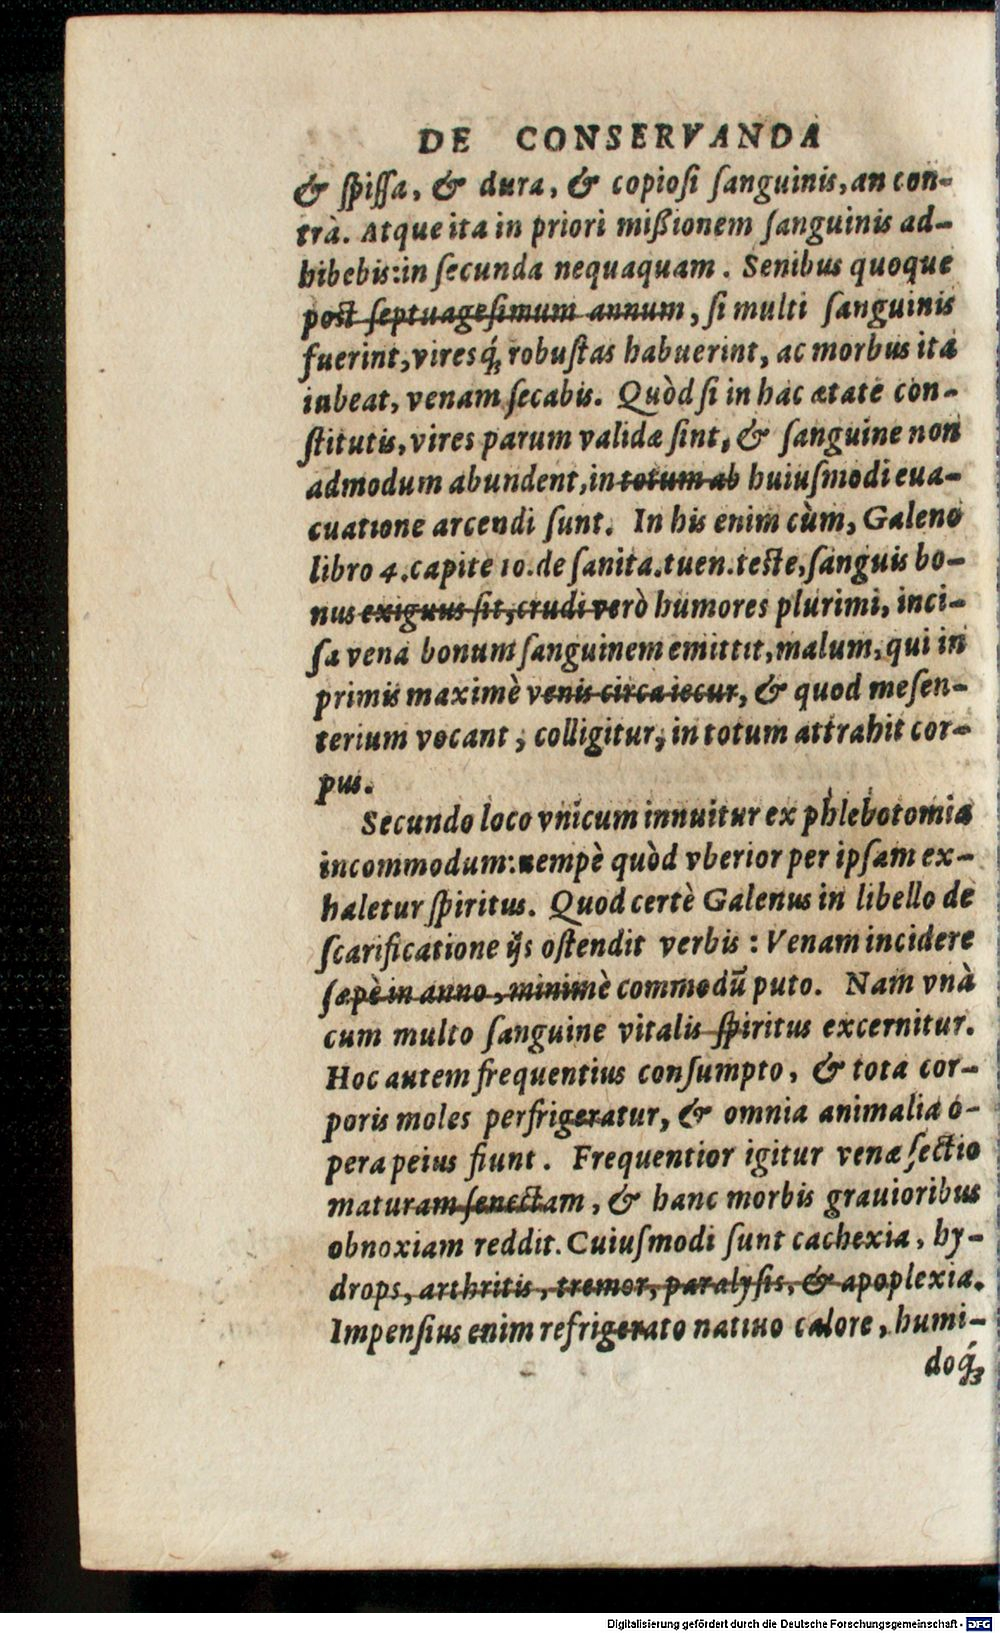 DE CONSERVANDA
& ſpiſſa, & dura, & copioſi ſanguinis, an con-
trà. Atque ita in priori mißionem ſanguinis ad-
hibebis: in ſecunda nequaquam. Senibus quoque
post ſeptuageſimum annum, ſi multi ſanguinis
fuerint, viresq́; robuſtas habuerint, ac morbus ita
iubeat, venam ſecabis. Quòd ſi in hac ætate con-
ſtitutis, vires parum validæ ſint, & ſanguine non
admodum abundent, in totum ab huiuſmodi eua-
cuatione arcendi ſunt. In his enim cùm, Galeno
libro 4. capite 10. de ſanita. tuen. teste, ſanguis bo-
nus exiguus ſit, crudi verò humores plurimi, inci-
ſa vena bonum ſanguinem emittit, malum, qui in
primis maximè venis circa iecur, & quod meſen-
terium vocant, colligitur, in totum attrahit cor-
pus.
Secundo loco vnicum innuitur ex phlebotomia
incommodum: nempè quòd vberior per ipſam ex-
haletur ſpiritus. Quod certè Galenus in libello de
ſcarificatione ijs oſtendit verbis: Venam incidere
ſæpè in anno, minimè commodū puto. Nam vnà
cum multo ſanguine vitalis ſpiritus excernitur.
Hoc autem frequentius conſumpto, & tota cor-
poris moles perfrigeratur, & omnia animalia o-
pera peius fiunt. Frequentior igitur venæ ſectio
maturam ſenectam, & hanc morbis grauioribus
obnoxiam reddit. Cuiuſmodi ſunt cachexia, hy-
drops, arthritis, tremor, paralyſis, & apoplexia.
Impenſius enim refrigerato natiuo calore, humi-
doq́;
Digitalisierung gefördert durch die Deutsche Forschungsgemeinschaft - DFG